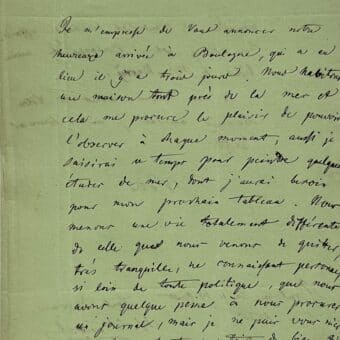 Je m'empresse de vous annoncer notre
heureuse arrivée à Boulogne, qui a eu
lieu il y a trois jours. Nous habitons
une maison tout près de la mer et
cela me procure le plaisir de pouvoir
l'observer à chaque moment, aussi je
saisirai ce temps pour peindre quelques
études de mer, dont j'aurai besoin
pour mon prochain tableau. Nous
menons une vie totalement différente
de celle que nous venons de quitter,
très tranquilles, ne connaissant personne,
si loin de toute politique, que nous
avons quelque peine à nous procurer
un journal, mais je ne puis vous nier